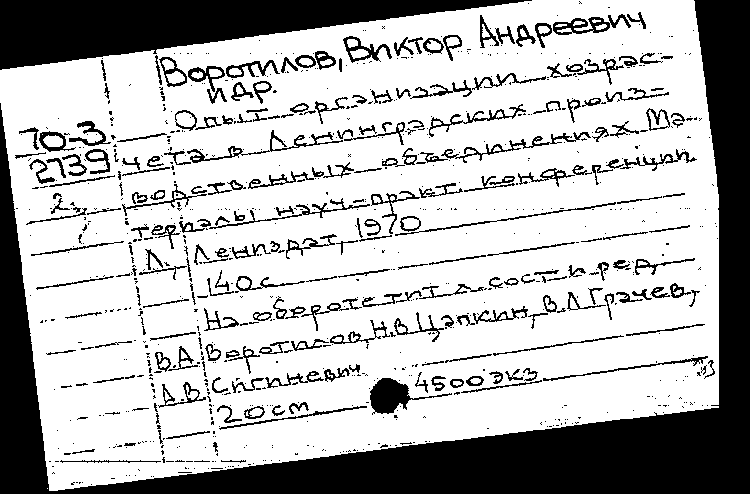 Воротилов, Виктор Андреевич
и др.
Опыт организации хозрас-
70-3
2739
чета в Ленинградских произ-
водственных объединениях Ма-
2
териалы науч-практ. конференции.
Л., Лениздат, 1970
140 с.
На обороте тит л. сост и ред.
В.А. Воротилов, Н.В. Цапкин, В.Л Грачев,
А.В. Сигиневич
20 см 4500 экз